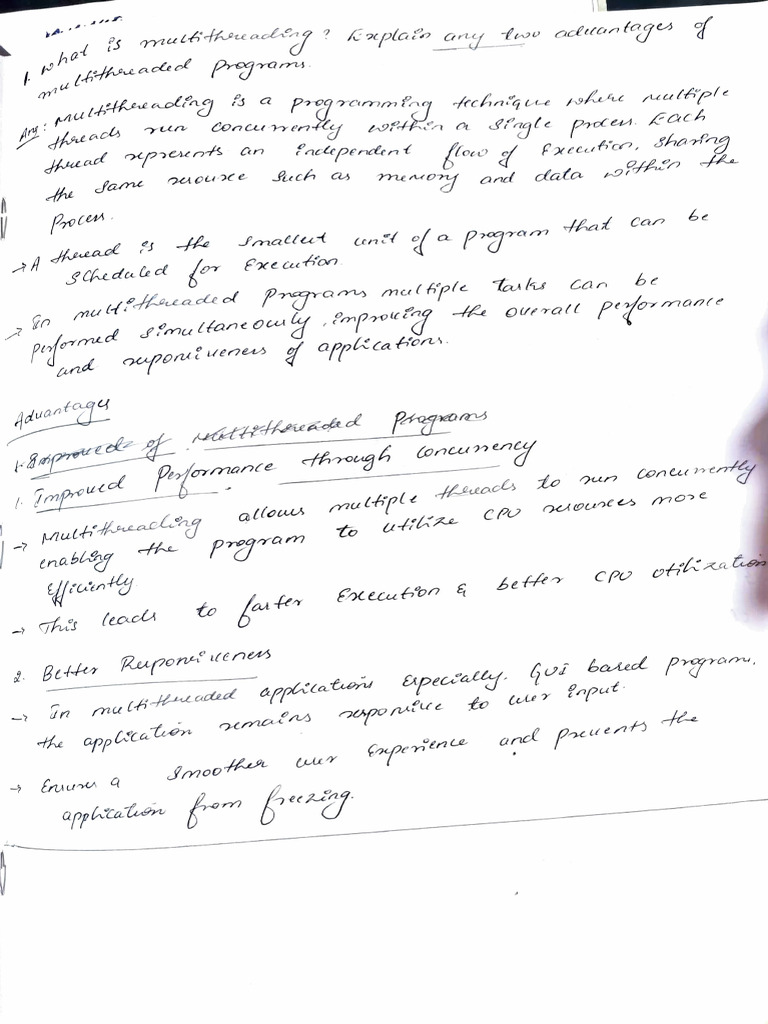 1. What is multithreading? Explain any two advantages of
multithreaded programs.
Ans: Multithreading is a programming technique where multiple
threads run concurrently within a single process. Each
thread represents an independent flow of Execution, sharing
the same resource such as memory and data within the
Process.
→ A thread is the smallest unit of a program that can be
scheduled for Execution.
→ In multithreaded Programs multiple tasks can be
performed simultaneously, improving the overall performance
and responsiveness of applications.
Advantages
1. Improved of Multithreaded Programs
1. Improved Performance through concurrency
→ Multithreading allows multiple threads to run concurrently
enabling the program to utilize CPU resources more
Efficiently.
→ This leads to faster Execution & better CPU utilization
2. Better Responsiveness
→ In multithreaded applications Especially. GUI based program,
the application remains responsive to user input.
→ Ensures a smoother user Experience and prevents the
application from freezing.